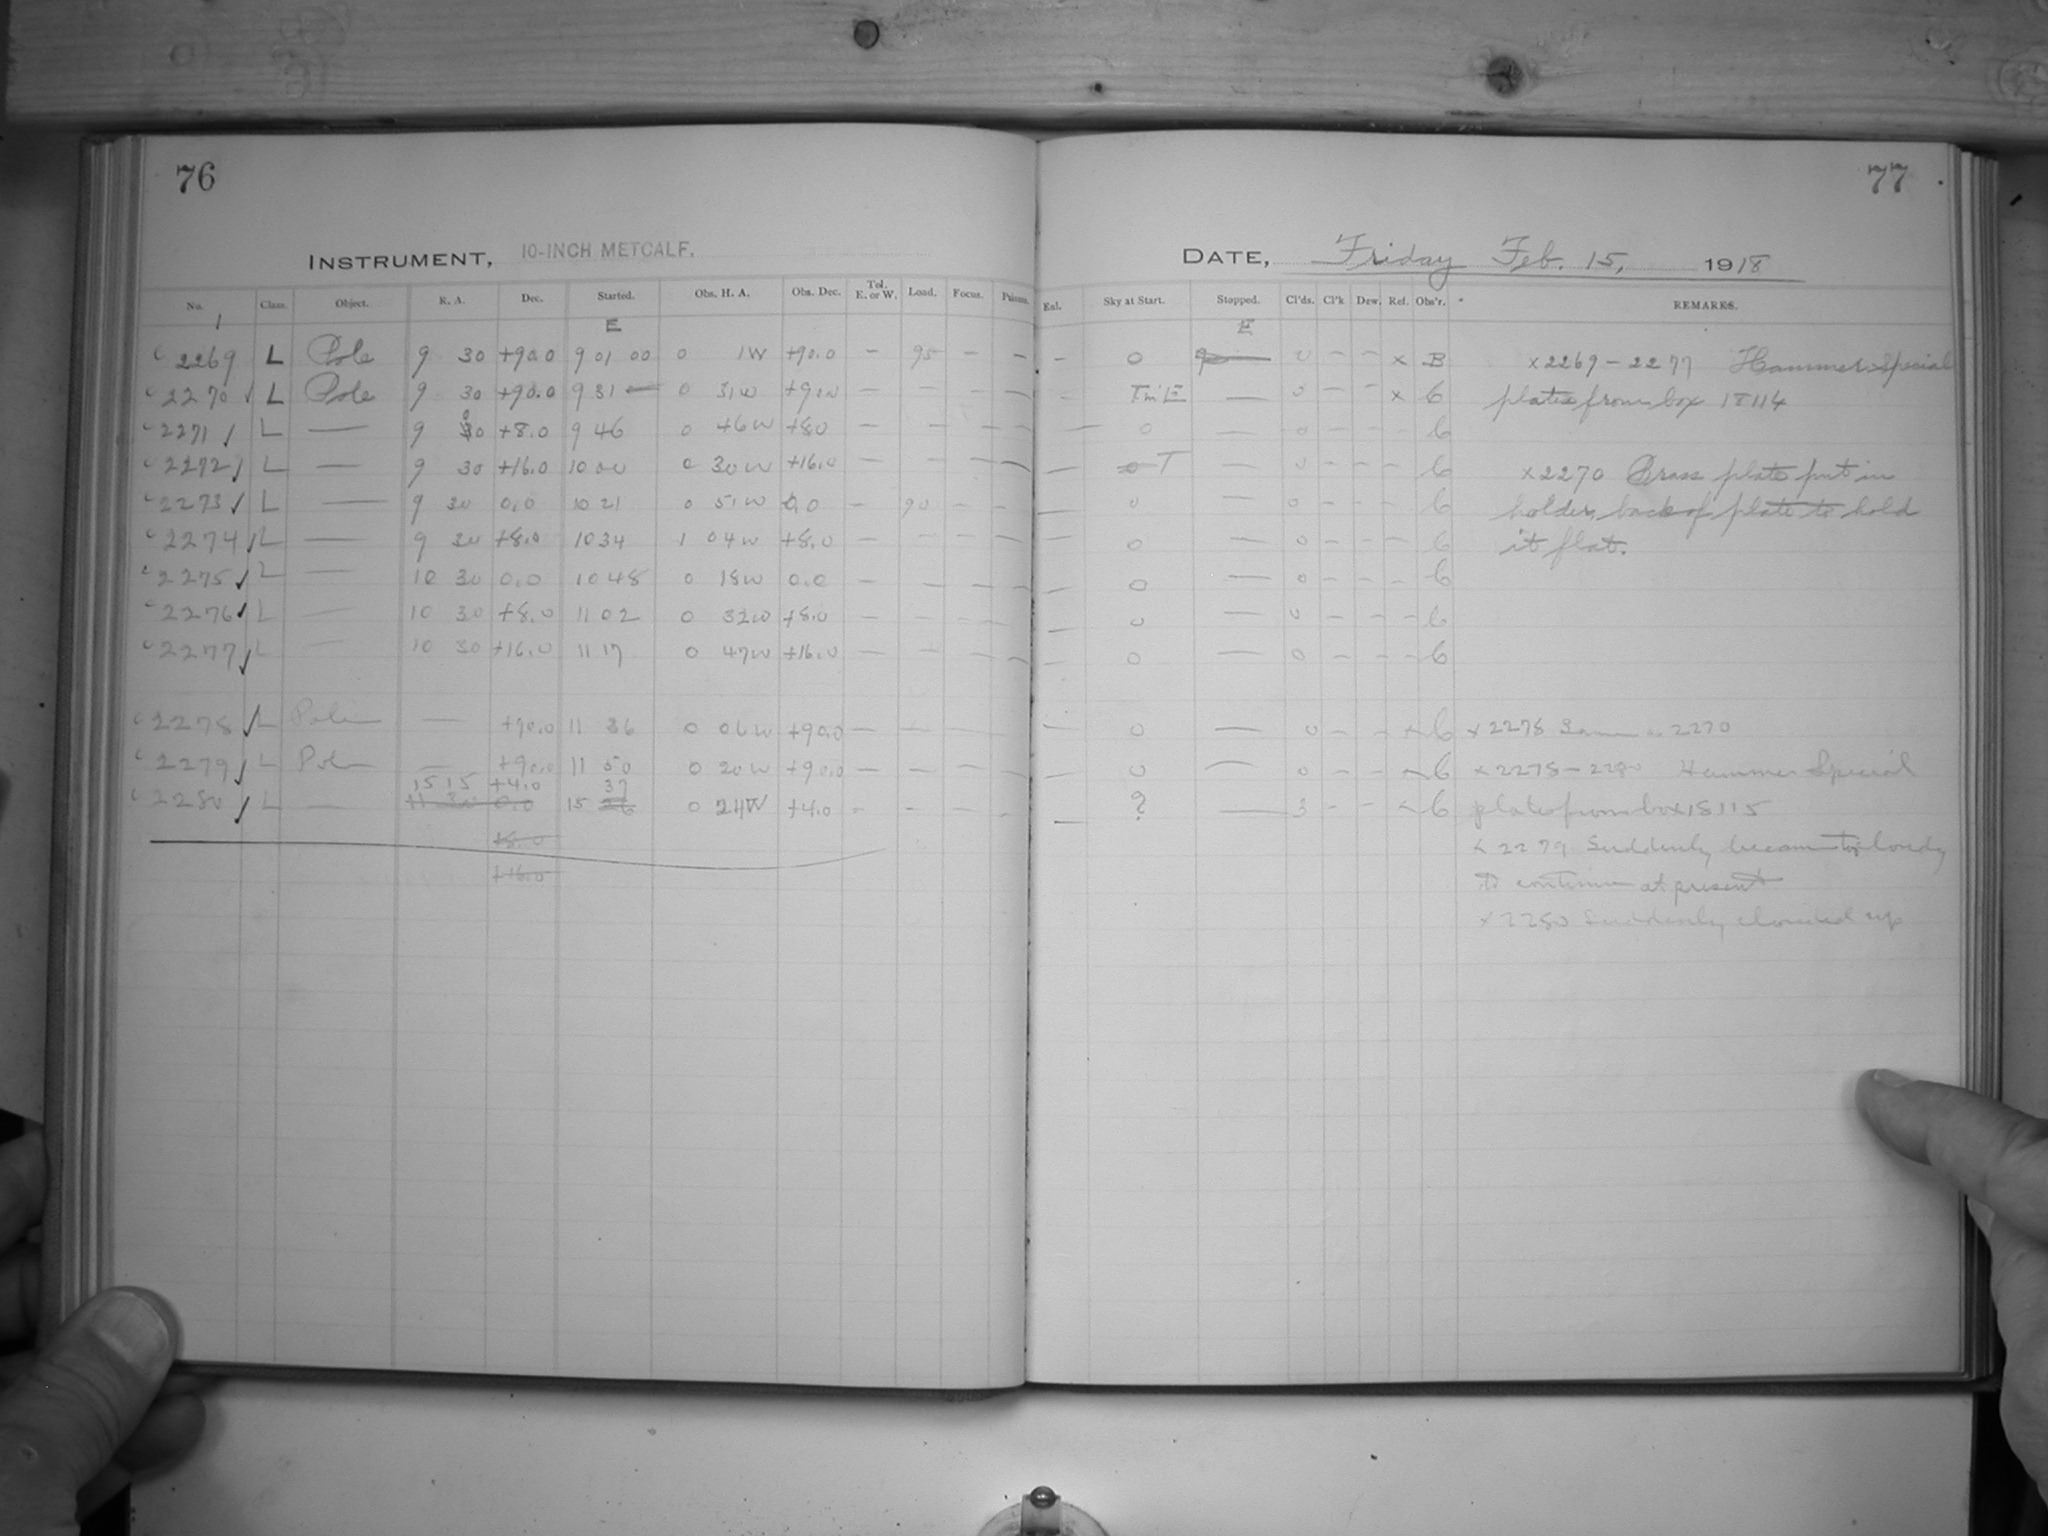 76
INSTRUMENT, 10-INCH METCALF.
No. Class. Object. R. A. Dec. Started. Obs. H. A. Obs. Dec. Tel. E. or W. Load. Focus.
E
c 2269 L Pole 9 30 +90.0 9 01 00 0 1W +90.0 — 95 — — 
c 2270 L Pole 9 30 +90.0 9 31 — 0 31W +90.0 — — — —
c 2271 L — 9 30 +8.0 9 46 0 46W +8.0 — — — —
c 2272 L — 9 30 +16.0 10 00 0 30W +16.0 — — — —
c 2273 L — 9 30 0.0 10 21 0 51W 0.0 — 90 — —
c 2274 L — 9 30 +8.0 10 34 1 04W +8.0 — — — —
c 2275 L — 10 30 0.0 10 48 0 18W 0.0 — — — —
c 2276 L — 10 30 +8.0 11 02 0 32W +8.0 — — — —
c 2277 L — 10 30 +16.0 11 17 0 47W +16.0 — — — —
c 2278 L Pole — +90.0 11 36 0 06W +90.0 — — — —
c 2279 L Pole — +90.0 11 50 0 20W +90.0 — — — —
15 15 +4.0 37
c 2280 L — 11 30 0.0 15 0 24W +4.0 — — — —
+8.0
+16.0
77
DATE, Friday Feb. 15, 1918
Sky at Start. Stopped. Cl'ds. Cl'k Dew. Ref. Obs'r. REMARKS.
E
— 0 0 — — x B x2269 – 2277 Hammer Special
— — 0 — — x C plates from box 18114
— 0 — 0 — — C
— T — 0 — — C x2270 Brass plate put in
— 0 — 0 — — — C holder, back of plate to hold
— 0 — 0 — — — C it flat.
— 0 — 0 — — — C
— 0 — 0 — — — C
— 0 — 0 — — — C
— 0 — 0 — — x C x2278 Same as 2270
— 0 — 0 — — x C x2278 – 2280 Hammer Special
— ? — 3 — — x C plates from box 18115
x 2279 Suddenly became too cloudy
to continue at present
x 2280 Suddenly clouded up